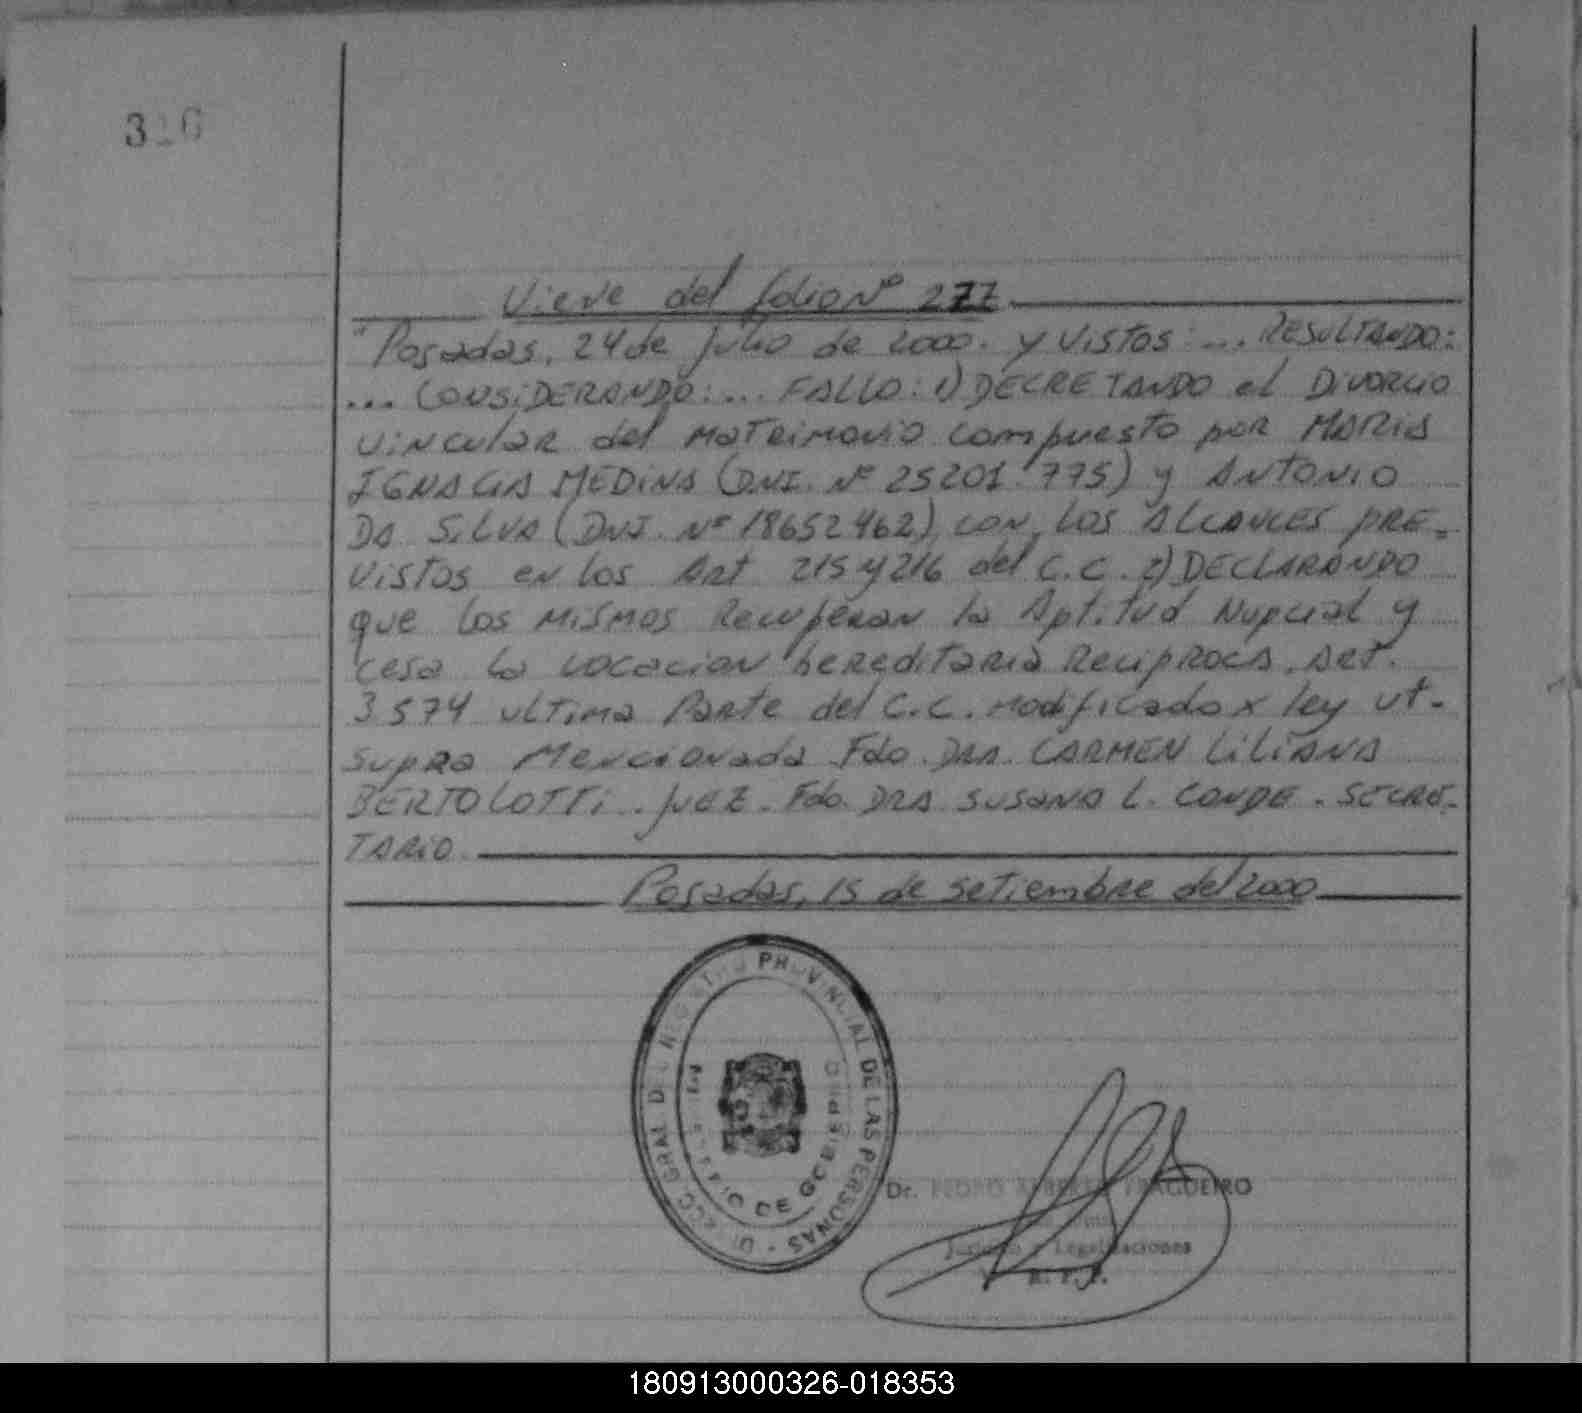 316
Viene del folio Nº 277
"Posadas, 24 de julio de 2000. y Vistos: ... RESULTANDO:
... CONSIDERANDO: ... FALLO: 1) DECRETANDO el DIVORCIO
VINCULAR del MATRIMONIO compuesto por MARIA
IGNACIA MEDINA (DNI. Nº 25201.775) y ANTONIO
DA SILVA (DNI. Nº 18652462), con los ALCANCES PRE-
VISTOS en los Art 215 y 216 del C.C. 2) DECLARANDO
que los MISMOS Recuperan la Aptitud Nupcial y
cesa la vocacion hereditaria RECIPROCA. Art.
3574 ultima Parte del C.C. modificado x ley ut-
supra Mencionada Fdo. DRA. CARMEN LILIANA
BERTOLOTTI. JUEZ. Fdo. DRA SUSANA L. CONDE. SECRE-
TARIO.
Posadas, 15 de setiembre del 2000
DIRECC. GRAL DEL REGISTRO PROVINCIAL DE LAS PERSONAS -
MINISTERIO DE GOBIERNO
Dr. PEDRO ALBERTO FRAGUEIRO
Jurídico y Legalizaciones
R. P. P.
180913000326-018353